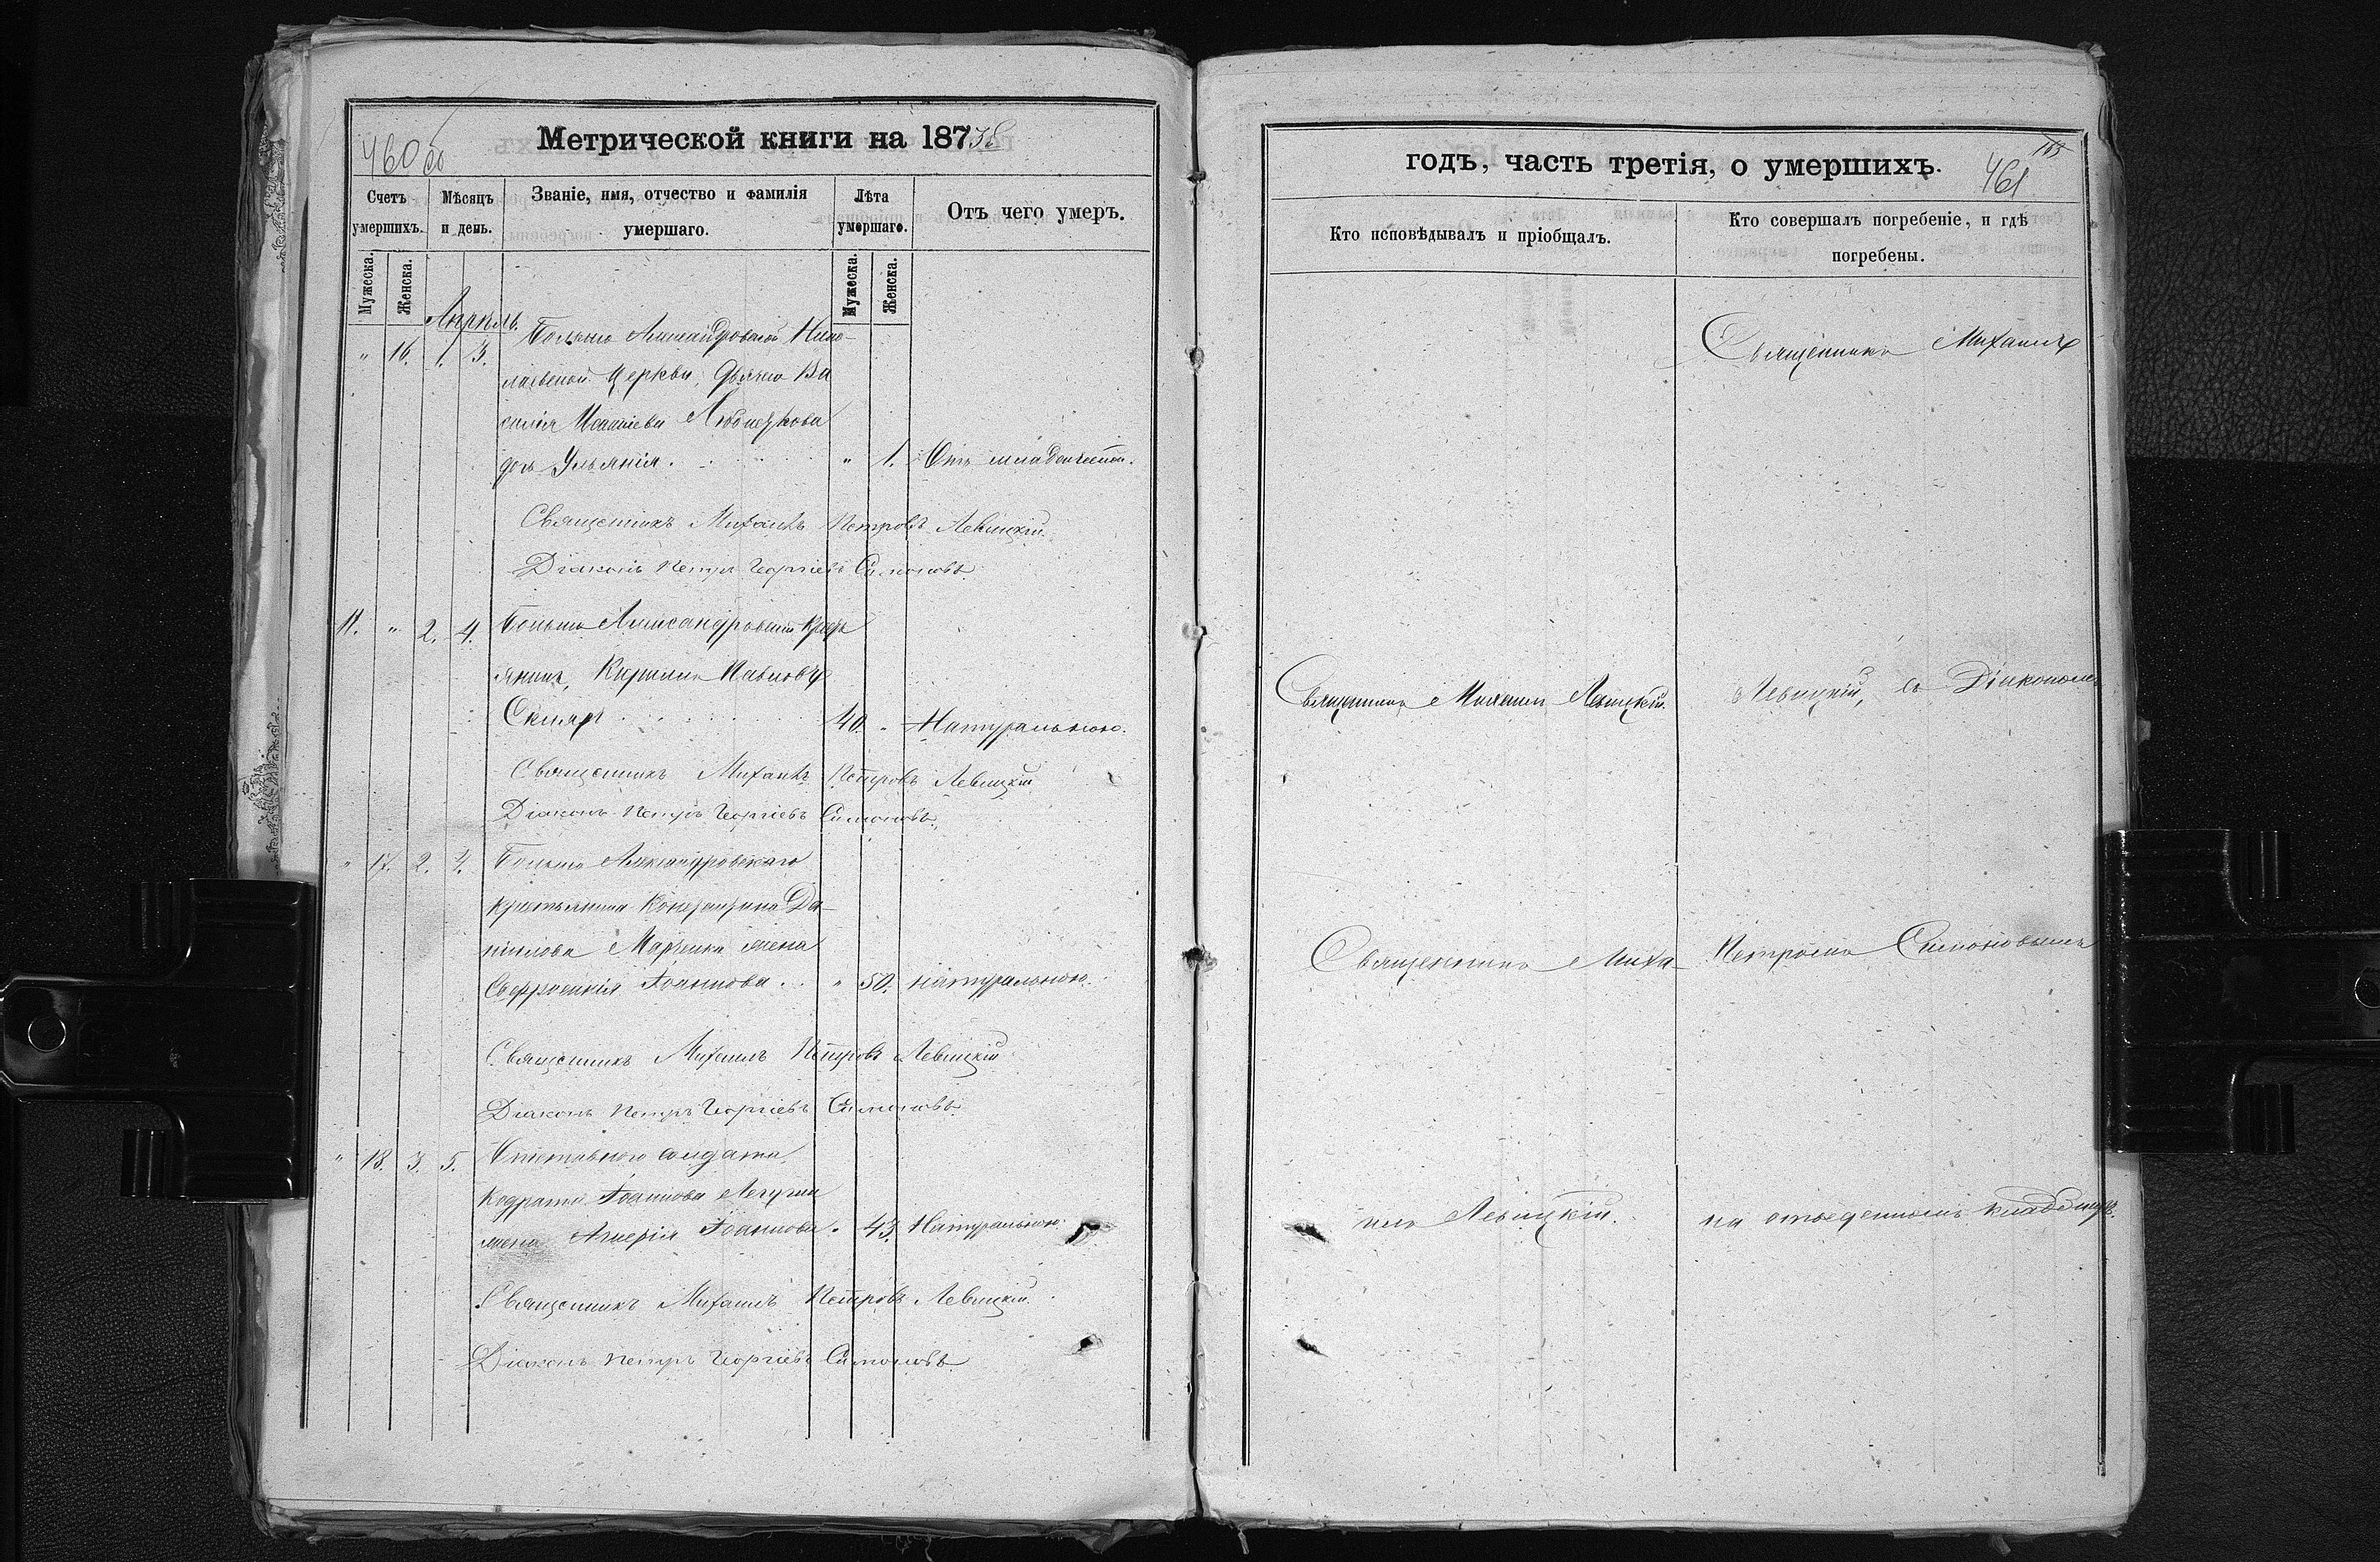 460 об
Метрической книги на 1873
Счетъ умершихъ.
Мѣсяцъ и день.
Званіе, имя, отчество и фамилія умершаго.
Лѣта умершаго.
Отъ чего умеръ.
Мужеска.
Женска.
Мужеска.
Женска.
Апрѣль.
" 16. 1. 3. Больше Александровской Нико-
лаевской Церкви, Дьячка Ва
силія
дочь Ульянія. " 1. Отъ младенческой.
Священникъ Михаилъ Петровъ Левицкій.
Діаконъ Петръ Георгіевъ Симоновъ.
11. " 2. 4. Больше Александровскій Крест
янинъ, Кирилъ Павловъ
Скляръ 40. " Натуральною.
Священникъ Михаилъ Петровъ Левицкій
Діаконъ Петръ Георгіевъ Симоновъ.
" 17. 2. 4. Больше Александровскаго
крестьянина Константина Да-
нилова Марченка жена
Евфросинія Іоаннова. " 50. натуральною.
Священникъ Михаилъ Петровъ Левицкій
Діаконъ Петръ Георгіевъ Симоновъ.
" 18. 3. 5. солдата
Кодрата Іоаннова
жена Іоаннова. " 43. Натуральною.
Священникъ Михаилъ Петровъ Левицкій.
Діаконъ Петръ Георгіевъ Симоновъ
годъ, часть третія, о умершихъ.
461
Кто исповѣдывалъ и пріобщалъ.
Кто совершалъ погребеніе, и гдѣ погребены.
Священникъ Михаилъ
Священникъ Михаилъ Левицкій.
Левицкій, съ Діакономъ
Священникъ Миха-
Петромъ Симоновымъ
илъ Левицкій.
на отведенномъ кладбищѣ.